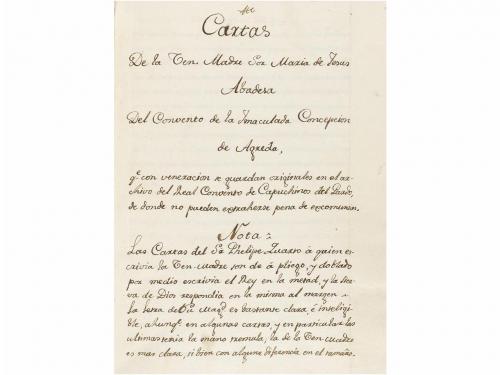 Cartas
De la Ven. Madre Sor Maria de Jesus
Abadesa
Del Convento de la Inmaculada Concepcion
de Agreda,
q.e con veneracion se guardan originales en el ar-
chivo del Real Convento de Capuchinos del Pardo,
de donde no pueden extraherse pena de excomunion.
Nota =
Las Cartas del S.r Phelipe Quarto à quien es-
crivia la Ven. Madre son de à pliego, y doblado
por medio escrivia el Rey en la metad, y la Sier-
va de Dios respondia en la misma al margen.
La letra de Su Mag.d es bastante clara, è inteligi-
ble, aunq.e en algunas cartas, y en particular las
ultimas tenia la mano tremula, la de la Ven. Madre
es mas clara, si bien con alguna diferencia en el tamaño.